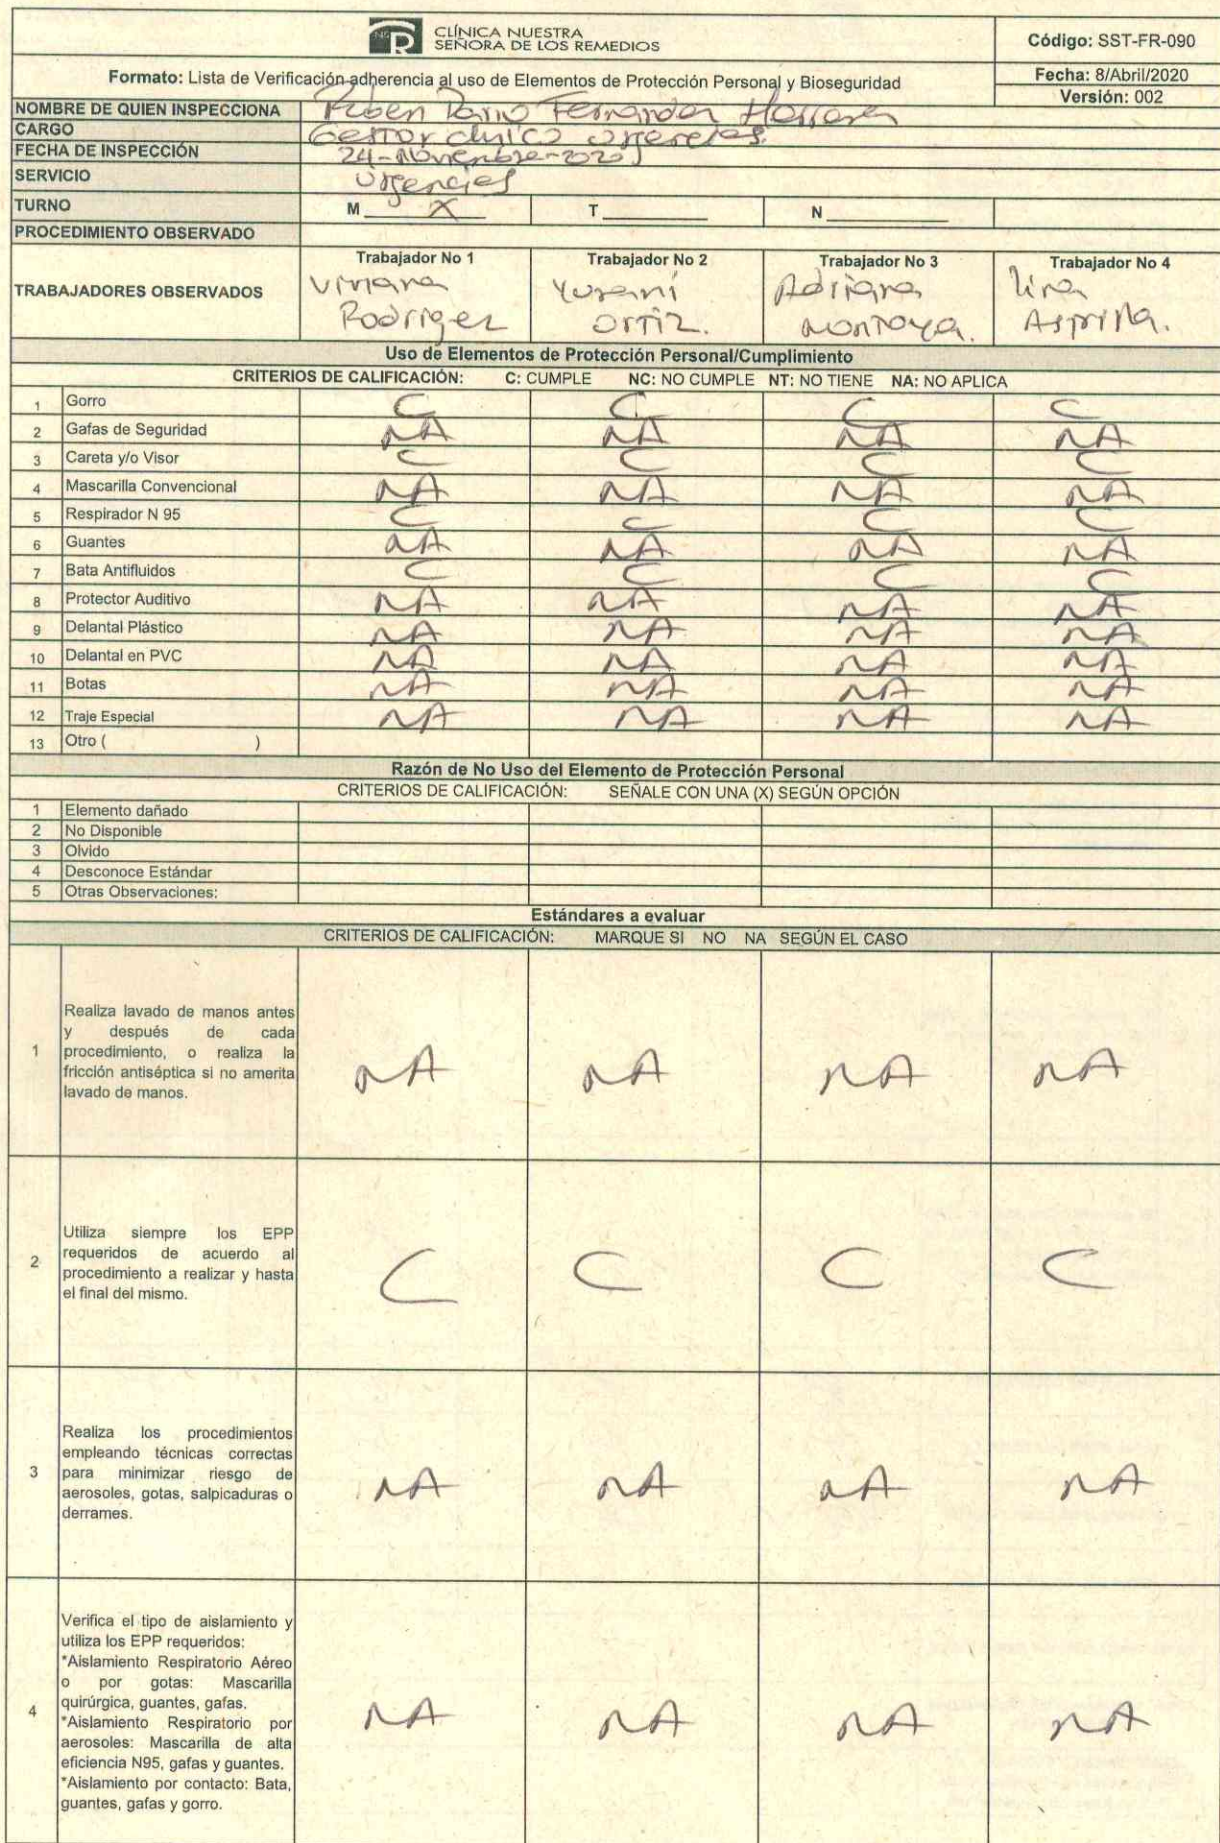 NSR CLÍNICA NUESTRA
SEÑORA DE LOS REMEDIOS
Código: SST-FR-090
Formato: Lista de Verificación adherencia al uso de Elementos de Protección Personal y Bioseguridad
Fecha: 8/Abril/2020
Versión: 002
NOMBRE DE QUIEN INSPECCIONA Ruben Dario Fernandez Herrera
CARGO Gestor clinico urgencias.
FECHA DE INSPECCIÓN 24-Noviembre-2020
SERVICIO Urgencias
TURNO M X T N
PROCEDIMIENTO OBSERVADO
TRABAJADORES OBSERVADOS
Trabajador No 1 Trabajador No 2 Trabajador No 3 Trabajador No 4
Viviana Yurani Adriana Lina
Rodriguez Ortiz. Montoya. Asprilla.
Uso de Elementos de Protección Personal/Cumplimiento
CRITERIOS DE CALIFICACIÓN: C: CUMPLE NC: NO CUMPLE NT: NO TIENE NA: NO APLICA
1 Gorro C C C C
2 Gafas de Seguridad NA NA NA NA
3 Careta y/o Visor C C C C
4 Mascarilla Convencional NA NA NA NA
5 Respirador N 95 C C C C
6 Guantes NA NA NA NA
7 Bata Antifluidos C C C C
8 Protector Auditivo NA NA NA NA
9 Delantal Plástico NA NA NA NA
10 Delantal en PVC NA NA NA NA
11 Botas NA NA NA NA
12 Traje Especial NA NA NA NA
13 Otro ( )
Razón de No Uso del Elemento de Protección Personal
CRITERIOS DE CALIFICACIÓN: SEÑALE CON UNA (X) SEGÚN OPCIÓN
1 Elemento dañado
2 No Disponible
3 Olvido
4 Desconoce Estándar
5 Otras Observaciones:
Estándares a evaluar
CRITERIOS DE CALIFICACIÓN: MARQUE SI NO NA SEGÚN EL CASO
1
Realiza lavado de manos antes
y después de cada
procedimiento, o realiza la
fricción antiséptica si no amerita
lavado de manos.
NA NA NA NA
2
Utiliza siempre los EPP
requeridos de acuerdo al
procedimiento a realizar y hasta
el final del mismo.
C C C C
3
Realiza los procedimientos
empleando técnicas correctas
para minimizar riesgo de
aerosoles, gotas, salpicaduras o
derrames.
NA NA NA NA
4
Verifica el tipo de aislamiento y
utiliza los EPP requeridos:
*Aislamiento Respiratorio Aéreo
o por gotas: Mascarilla
quirúrgica, guantes, gafas.
*Aislamiento Respiratorio por
aerosoles: Mascarilla de alta
eficiencia N95, gafas y guantes.
*Aislamiento por contacto: Bata,
guantes, gafas y gorro.
NA NA NA NA